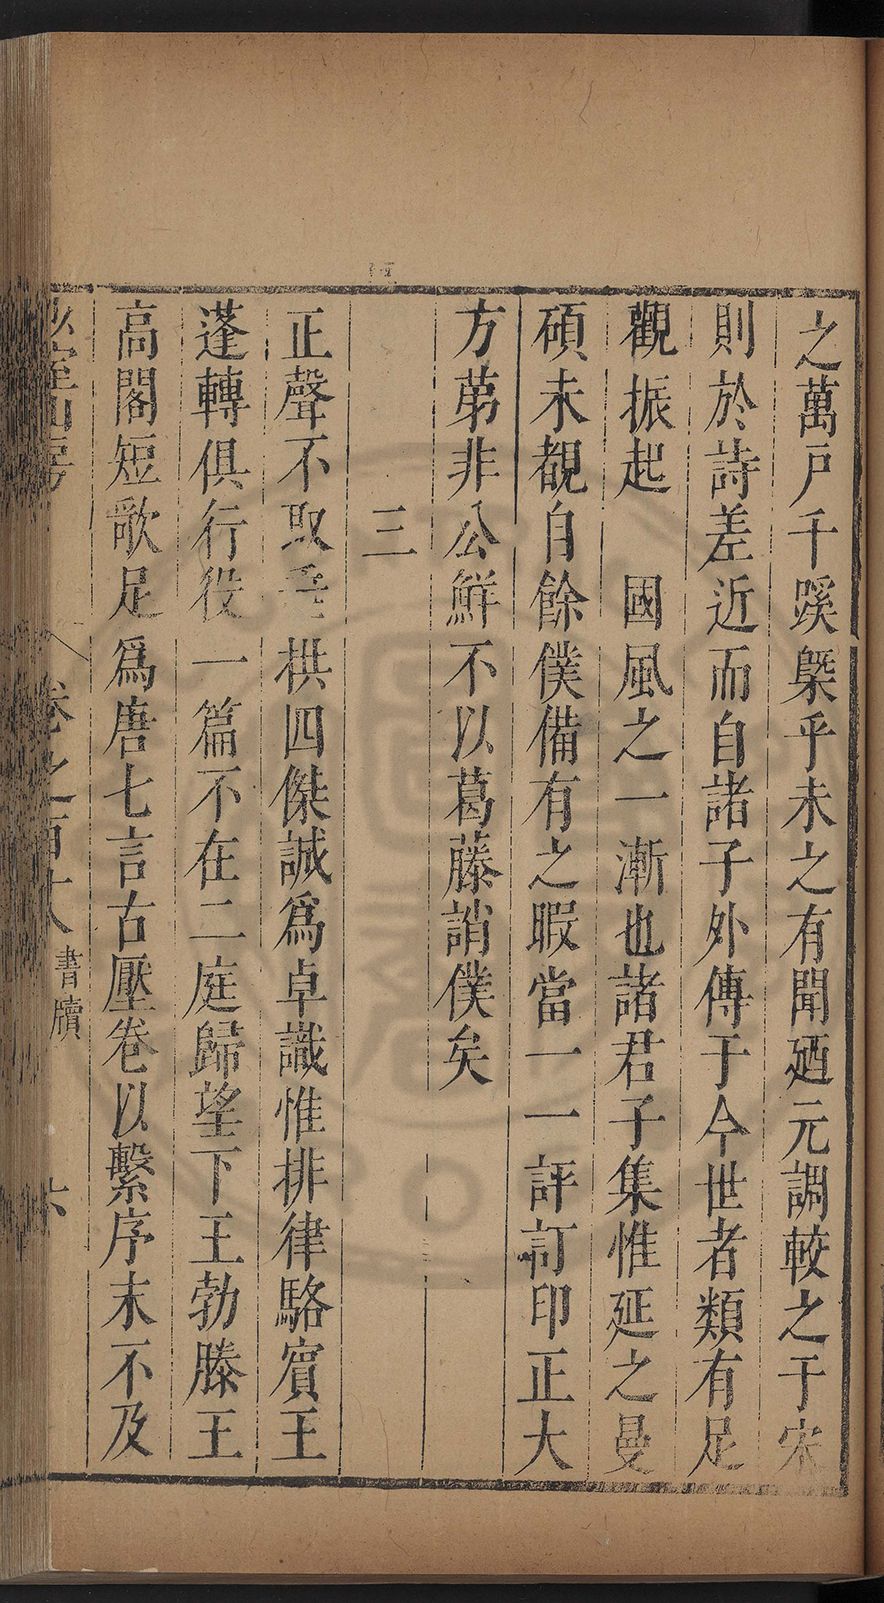 之萬戶千蹊槩乎未之有聞廼元調較之于宋
則於詩差近而自諸子外傳于今世者類有足
觀振起　國風之一漸也諸君子集惟延之曼
碩未覩自餘僕備有之暇當一一評訂印正大
方苐非公鮮不以葛藤誚僕矣
三
正聲不取垂拱四傑誠爲卓識惟排律駱賓王
蓬轉俱行役一篇不在二庭歸望下王勃滕王
高閣短歌足爲唐七言古壓卷以繫序末不及
山房
卷之百十八
書牘
六